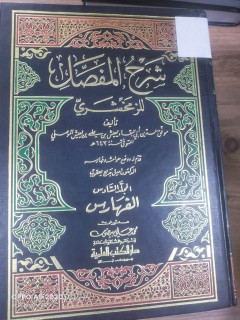 شرح المفصل
للزمخشري
تأليف
موفق الدين أبي البقاء يعيش بن علي بن يعيش الموصلي
المتوفى سنة ٦٤٣ هـ
قدم له ووضع هوامشه وفهارسه
الدكتور إميل بديع يعقوب
المجلد السادس
الفهارس
منشورات
محمد علي بيضون
دار الكتب العلمية